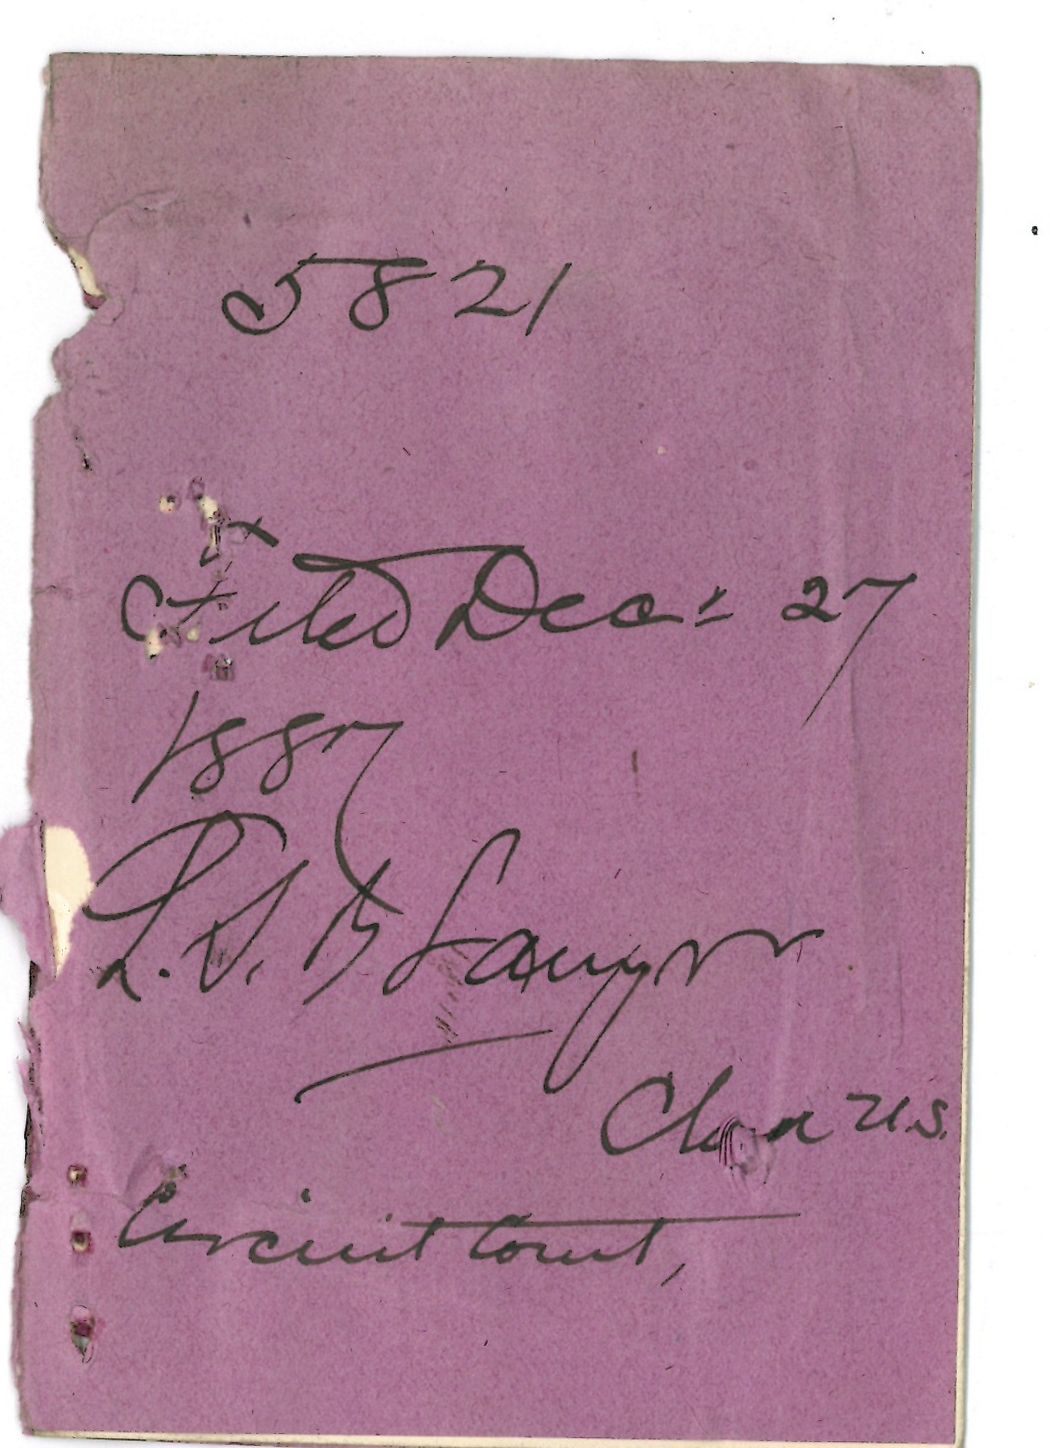 5821
Filed Dec: 27
1887
L. S. B Sawyer
Clerk U.S.
Circuit Court,